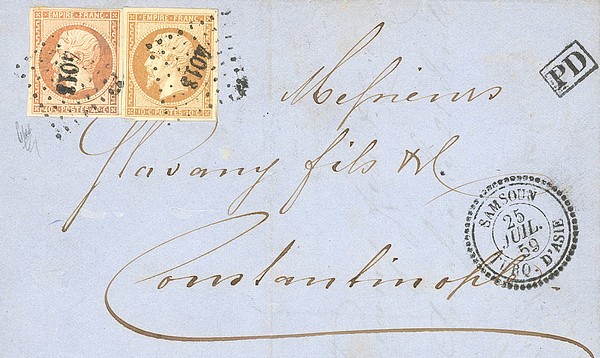 EMPIRE FRANC. EMPIRE FRANC.
4013 4013
40 C. POSTES 40 C. 10 C. POSTES 10 C.
PD
Messieurs
Glavany fils & C.
Constantinople
SAMSOUN
25
JUIL.
59
TURQ. D'ASIE